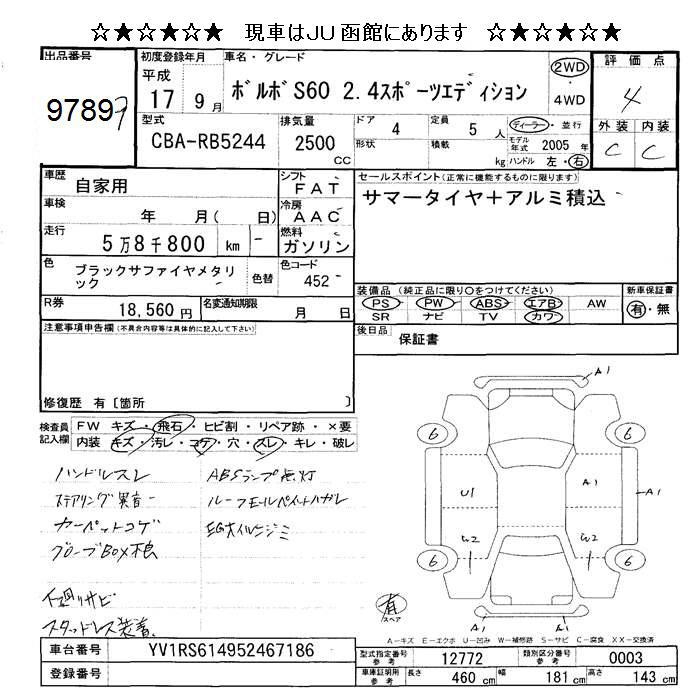 ☆★☆★☆★ 現車はJU函館にあります ☆★☆★☆★
出品番号
97897
初度登録年月
平成
17 9月
車名・グレード
ボルボS60 2.4スポーツエディション
2WD
4WD
評価点
4
外装 内装
C C
型式
CBA-RB5244
排気量
2500
CC
ドア 4
形状
定員 5 人
積載 kg
ディーラー・並行
モデル年式 2005 年
ハンドル 左・右
車歴
自家用
車検
年 月( 日)
走行
5万8千800 km
色
ブラックサファイヤメタリック
色替
シフト
FAT
冷房
AAC
燃料
ガソリン
色コード
452
R券
18,560円
名変通知期限
月 日
セールスポイント(正常に機能するものに限ります)
サマータイヤ+アルミ積込
装備品 (純正品に限り○をつけてください)
PS PW ABS エアB AW
SR ナビ TV カワ
新車保証書
有・無
後日品
保証書
注意事項申告欄(不具合内容等は具体的に記入して下さい)
修復歴 有〔箇所 〕
検査員記入欄
FW キズ・飛石・ヒビ割・リペア跡・×要
内装 キズ・汚レ・コゲ・穴・スレ・キレ・破レ
ハンドルスレ
ステアリング異音
カーペットコゲ
グローブBOX不良
下廻りサビ
スタッドレス装着
ABSランプ点灯
ルーフモールペイントハガレ
EGオイルニジミ
A1
6 6
U1 A1 A1
W2 W2
6 6
A1 A1
有
スペア
A-キズ E-エクボ U-凹み W-補修跡 S-サビ C-腐食 XX-交換済
車台番号 YV1RS614952467186
登録番号
型式指定番号 参考 12772
類別区分番号 参考 0003
車庫証明用 参考 長さ 460 cm 幅 181 cm 高さ 143 cm